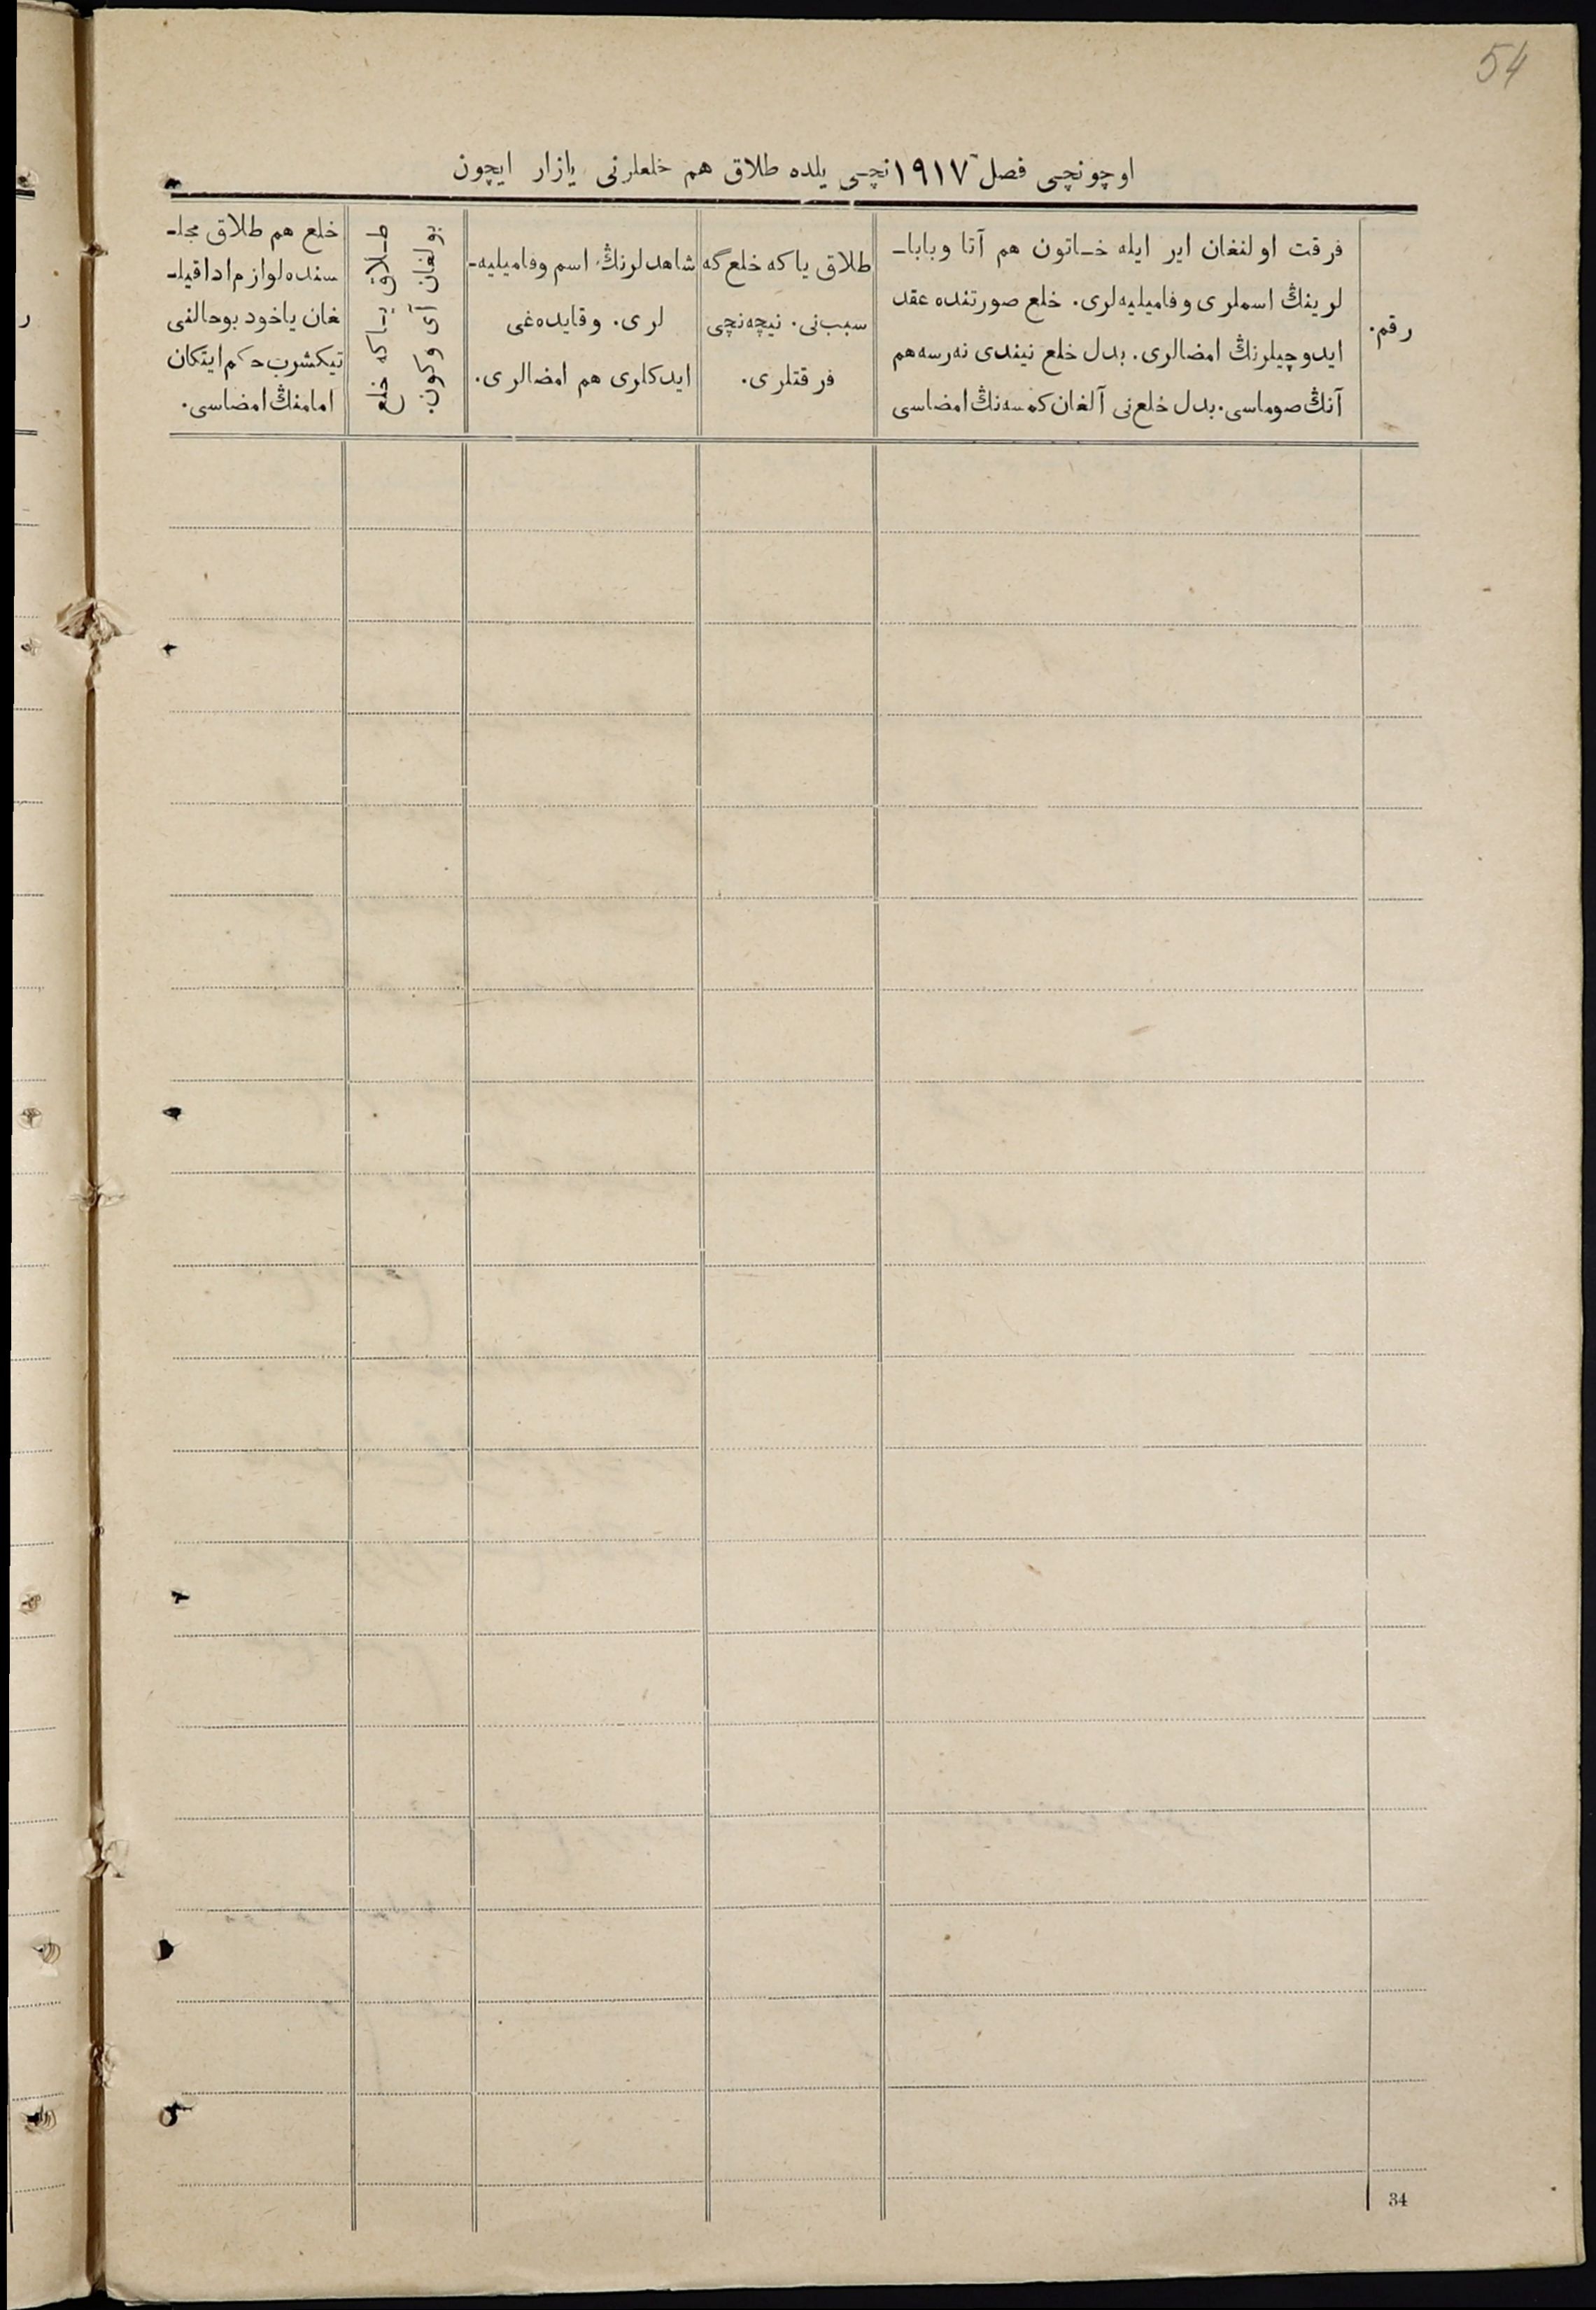 54
اوچونچی فصل ١٩١٧ نچی یلده طلاق هم خلعلرنی یازار ایچون
رقم.
فرقت اولنغان ایر ایله خاتون هم آتا وبابا-
لرینڭ اسملری وفامیلیه‌لری. خلع صورتنده عقد
ایدوچیلرنڭ امضالری. بدل خلع نیندی نه‌رسه هم
آنڭ صوماسی. بدل خلع‌نی آلغان کمسه‌نڭ امضاسی
طلاق یاکه خلع‌گه
سبب‌نی. نیچه‌نچی
فرقتلری.
شاهدلرنڭ اسم وفامیلیه-
لری. وقایده‌غی
ایدکلری هم امضالری.
طلاق یاکه خلع
بولغان آی وکون.
خلع هم طلاق مجلـ
سنده لوازم ادا قیلـ
غان یاخود بوحالنی
تیکشرب حکم ایتکان
امامنڭ امضاسی.
34